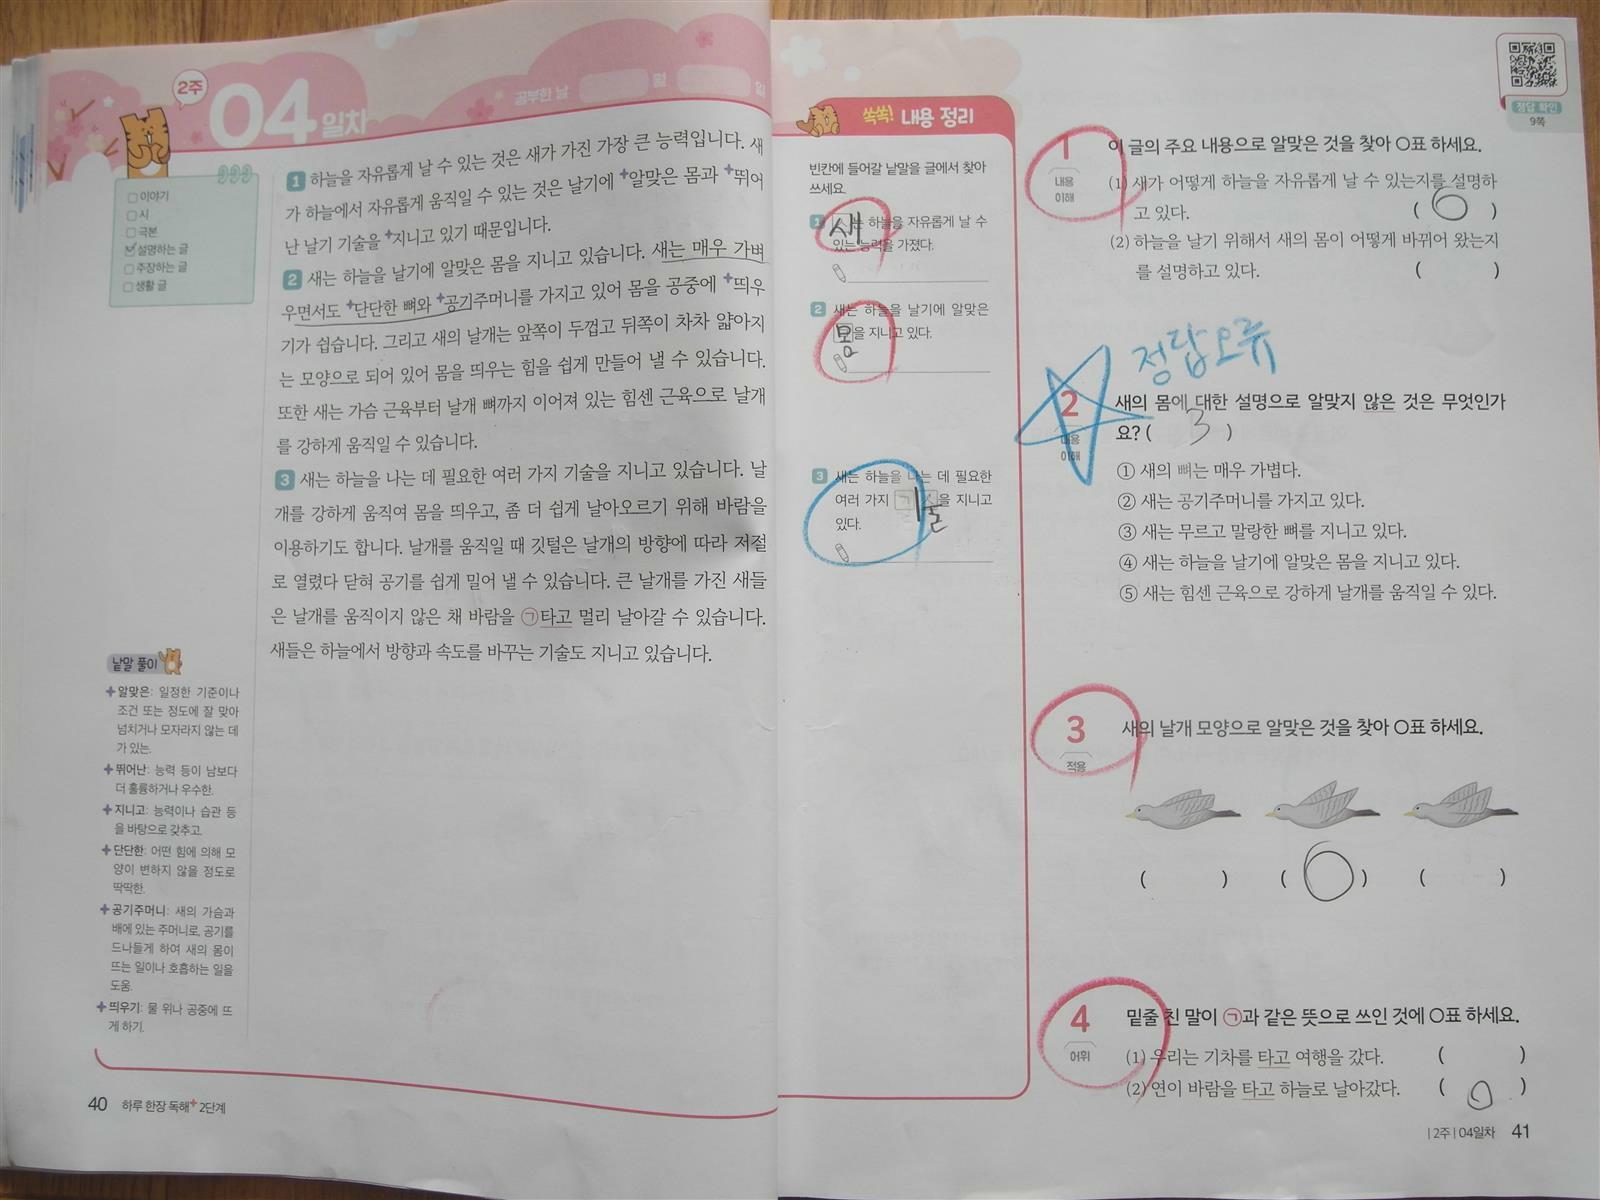 2주
04 일차
공부한 날 월 일
이야기
시
극본
설명하는 글
주장하는 글
생활 글
1 하늘을 자유롭게 날 수 있는 것은 새가 가진 가장 큰 능력입니다. 새
가 하늘에서 자유롭게 움직일 수 있는 것은 날기에 알맞은 몸과 뛰어
난 날기 기술을 지니고 있기 때문입니다.
2 새는 하늘을 날기에 알맞은 몸을 지니고 있습니다. 새는 매우 가벼
우면서도 단단한 뼈와 공기주머니를 가지고 있어 몸을 공중에 띄우
기가 쉽습니다. 그리고 새의 날개는 앞쪽이 두껍고 뒤쪽이 차차 얇아지
는 모양으로 되어 있어 몸을 띄우는 힘을 쉽게 만들어 낼 수 있습니다.
또한 새는 가슴 근육부터 날개 뼈까지 이어져 있는 힘센 근육으로 날개
를 강하게 움직일 수 있습니다.
3 새는 하늘을 나는 데 필요한 여러 가지 기술을 지니고 있습니다. 날
개를 강하게 움직여 몸을 띄우고, 좀 더 쉽게 날아오르기 위해 바람을
이용하기도 합니다. 날개를 움직일 때 깃털은 날개의 방향에 따라 저절
로 열렸다 닫혀 공기를 쉽게 밀어 낼 수 있습니다. 큰 날개를 가진 새들
은 날개를 움직이지 않은 채 바람을 ㉠타고 멀리 날아갈 수 있습니다.
새들은 하늘에서 방향과 속도를 바꾸는 기술도 지니고 있습니다.
낱말 풀이
알맞은: 일정한 기준이나
조건 또는 정도에 잘 맞아
넘치거나 모자라지 않는 데
가 있는.
뛰어난: 능력 등이 남보다
더 훌륭하거나 우수한.
지니고: 능력이나 습관 등
을 바탕으로 갖추고.
단단한: 어떤 힘에 의해 모
양이 변하지 않을 정도로
딱딱한.
공기주머니: 새의 가슴과
배에 있는 주머니로, 공기를
드나들게 하여 새의 몸이
뜨는 일이나 호흡하는 일을
도움.
띄우기: 물 위나 공중에 뜨
게 하기.
40 하루 한장 독해+ 2단계
쏙쏙! 내용 정리
빈칸에 들어갈 낱말을 글에서 찾아
쓰세요.
1 새는 하늘을 자유롭게 날 수
있는 능력을 가졌다.
2 새는 하늘을 날기에 알맞은
몸을 지니고 있다.
3 새는 하늘을 나는 데 필요한
여러 가지 기술을 지니고
있다.
정답 확인
9쪽
1 이 글의 주요 내용으로 알맞은 것을 찾아 ○표 하세요.
내용
이해
(1) 새가 어떻게 하늘을 자유롭게 날 수 있는지를 설명하
고 있다. ( ○ )
(2) 하늘을 날기 위해서 새의 몸이 어떻게 바뀌어 왔는지
를 설명하고 있다. ( )
정답오류
2 새의 몸에 대한 설명으로 알맞지 않은 것은 무엇인가
요? ( 3 )
내용
이해
① 새의 뼈는 매우 가볍다.
② 새는 공기주머니를 가지고 있다.
③ 새는 무르고 말랑한 뼈를 지니고 있다.
④ 새는 하늘을 날기에 알맞은 몸을 지니고 있다.
⑤ 새는 힘센 근육으로 강하게 날개를 움직일 수 있다.
3 새의 날개 모양으로 알맞은 것을 찾아 ○표 하세요.
적용
( ) ( ○ ) ( )
4 밑줄 친 말이 ㉠과 같은 뜻으로 쓰인 것에 ○표 하세요.
어휘
(1) 우리는 기차를 타고 여행을 갔다. ( )
(2) 연이 바람을 타고 하늘로 날아갔다. ( ○ )
| 2주 | 04일차 41